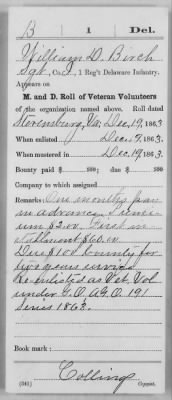 B | 1 | Del.
William D. Birch
Sgt, Co. I, 1 Reg't Delaware Infantry.
Appears on
M. and D. Roll of Veteran Volunteers
of the organization named above. Roll dated
Stevensburg, Va, Dec. 19, 1863
When enlisted Dec. 17, 1863
When mustered in Dec. 19, 1863
Bounty paid $ 100; due $ 100
Company to which assigned
Remarks: One months pay
in advance. Premi-
um $2.00. First in-
stallment $60.00
Due $100 bounty for
two years service
Re-enlisted as Vet. Vol
under G.O. A.G.O. 191
Series 1863.
Book mark:
Collins
(341) Copyist.